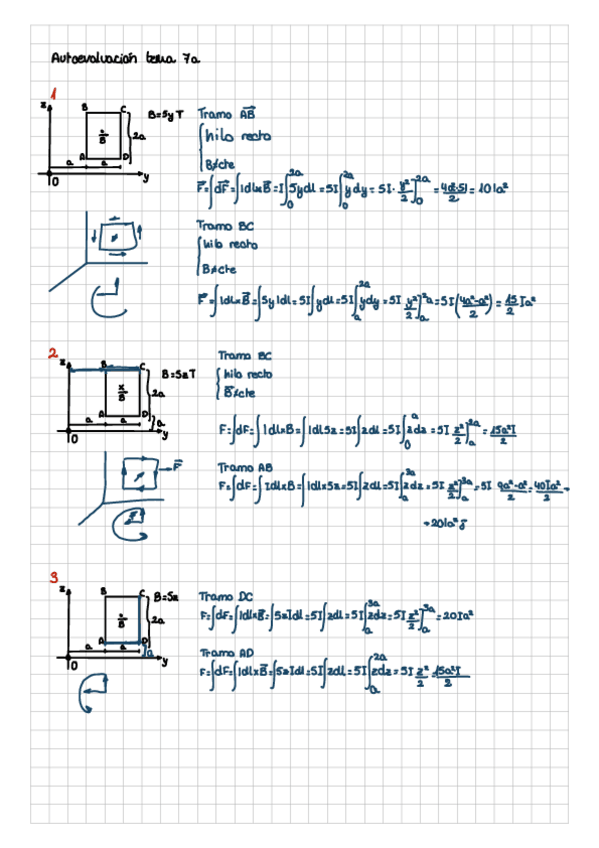 Autoevaluación tema 7a
1
z B C B=5y T Tramo AB
B 2a hilo recto
A D B≠cte
a a
0 y
F=∫dF=∫Idl×B=I∫₀²ᵃ5ydl=5I∫₀²ᵃydy=5I·y²/2]₀²ᵃ=4a²·5I/2=10Ia²
Tramo BC
hilo recto
B≠cte
F=∫Idl×B=∫5yIdl=5I∫ydl=5I∫ₐ²ᵃydy=5I y²/2]ₐ²ᵃ=5I(4a²-a²/2)=15/2Ia²
2 Tramo BC
z B C B=5z T hilo recto
x B 2a B≠cte
A D
a a a
0 y
F=∫dF=∫Idl×B=∫Idl5z=5I∫zdl=5I∫₀ᵃzdz=5I z²/2]ₐ²ᵃ=15a²I/2
Tramo AB
F
F=∫dF=∫Idl×B=∫Idl×5z=5I∫zdl=5I∫ₐ³ᵃzdz=5I z²/2]ₐ³ᵃ=5I 9a²-a²/2=40Ia²/2=
=20Ia²j
3
z B C B=5z Tramo DC
B 2a F=∫dF=∫Idl×B=∫5zIdl=5I∫zdl=5I∫ₐ³ᵃzdz=5I z²/2]ₐ³ᵃ=20Ia²
A D
a a a
0 y
Tramo AD
F=∫dF=∫Idl×B=∫5zIdl=5I∫zdl=5I∫ₐ²ᵃzdz=5I z²/2=15a²I/2